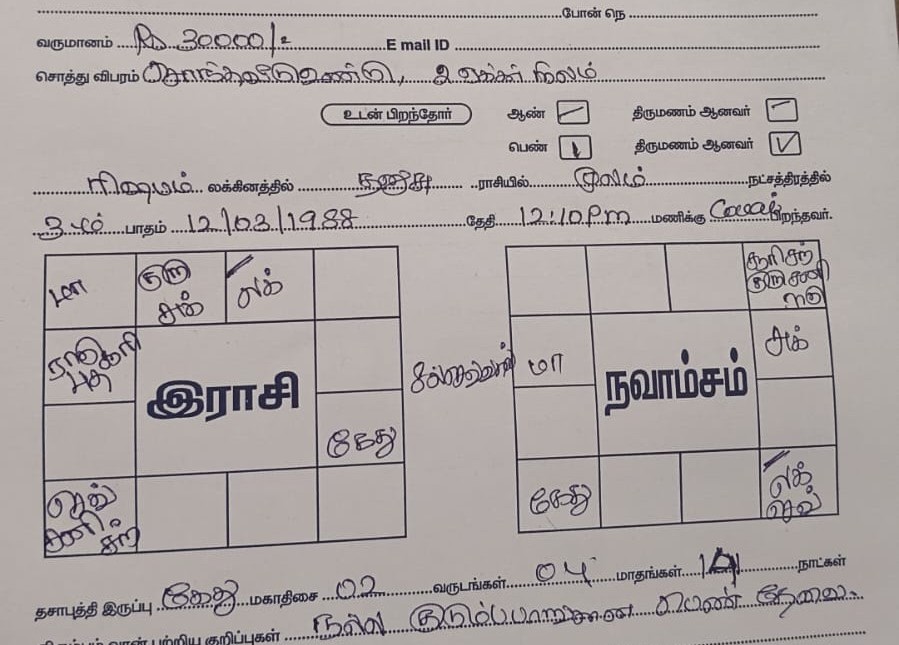 போன் நெ
வருமானம் Rs. 30000/- E mail ID
சொத்து விபரம் சொந்தவீடு உண்டு, 2 ஏக்கர் நிலம்
உடன் பிறந்தோர் ஆண் திருமணம் ஆனவர்
பெண் திருமணம் ஆனவர்
ரிஷபம் லக்கினத்தில் தனுசு ராசியில் மூலம் நட்சத்திரத்தில்
3ம் பாதம் 12/03/1988 தேதி 12:10 Pm மணிக்கு பிறந்தவர்.
மா குரு சுக் லக்
சூரி சந்
குரு சனி
ராகு
மா சுக்
இராசி நவாம்சம்
கேது
செவ்
சனி
சந்
கேது லக்
செவ்
தசாபுத்தி இருப்பு கேது மகாதிசை 02 வருடங்கள் 04 மாதங்கள் நாட்கள்
பற்றிய குறிப்புகள் நல்ல குடும்பபாங்கான பெண் தேவை.